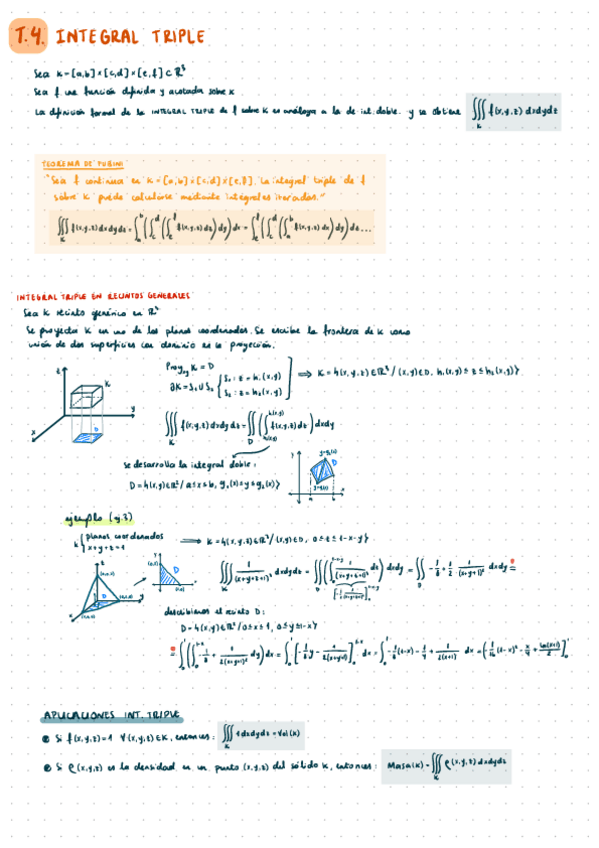 T.4. INTEGRAL TRIPLE
Sea K=[a,b]×[c,d]×[e,f]⊂ℝ³
Sea f una función definida y acotada sobre K
La definición formal de la INTEGRAL TRIPLE de f sobre K es análoga a la de int. doble y se obtiene ∭_K f(x,y,z) dxdydz
TEOREMA DE FUBINI
"Sea f continua en K=[a,b]×[c,d]×[e,f]. La integral triple de f
sobre K puede calcularse mediante integrales iteradas."
∭_K f(x,y,z)dxdydz = ∫_a^b(∫_c^d(∫_e^f f(x,y,z)dz)dy)dx = ∫_e^f(∫_c^d(∫_a^b f(x,y,z)dx)dy)dz...
INTEGRAL TRIPLE EN RECINTOS GENERALES
Sea K recinto genérico en ℝ³
Se proyecta K en uno de los planos coordenados. Se escribe la frontera de K como
unión de dos superficies con dominio en la proyección.
Proy_xy K = D
∂K = S₁∪S₂ { S₁: z=h₁(x,y)
S₂: z=h₂(x,y)
⟹ K={(x,y,z)∈ℝ³/(x,y)∈D, h₁(x,y)≤z≤h₂(x,y)}
z
K
y
x
D
∭_K f(x,y,z)dxdydz = ∬_D(∫ f(x,y,z)dz)dxdy
se desarrolla la integral doble:
D={(x,y)∈ℝ²/a≤x≤b, g₁(x)≤y≤g₂(x)}
y
y=g₂(x)
D
y=g₁(x)
a
b
x
ejemplo (ej.3)
K { planos coordenados
x+y+z=1
⟹ K={(x,y,z)∈ℝ³/(x,y)∈D, 0≤z≤1-x-y}
∭_K 1/(x+y+z+1)³ dxdydz = ∬_D(∫_0^{1-x-y} 1/(x+y+z+1)³ dz)dxdy = ∬_D -1/8+1/2·1/(x+y+1)² dxdy =
describimos el recinto D:
D={(x,y)∈ℝ²/0≤x≤1, 0≤y≤1-x}
= ∫_0^1(∫_0^{1-x} -1/8+1/2(x+y+1)² dy)dx = ∫_0^1[-1/8 y - 1/2(x+y+1)]_0^{1-x} dx = ∫_0^1 -1/8(1-x)-1/4+1/2(x+1) dx = (1/16(1-x)²-x/4+ln(x+1)/2)_0^1
APLICACIONES INT. TRIPLE
Si f(x,y,z)=1 ∀(x,y,z)∈K, entonces: ∭_K 1dxdydz=Vol(K)
Si ρ(x,y,z) es la densidad en un punto (x,y,z) del sólido K, entonces: Masa(K)=∭_K ρ(x,y,z)dxdydz